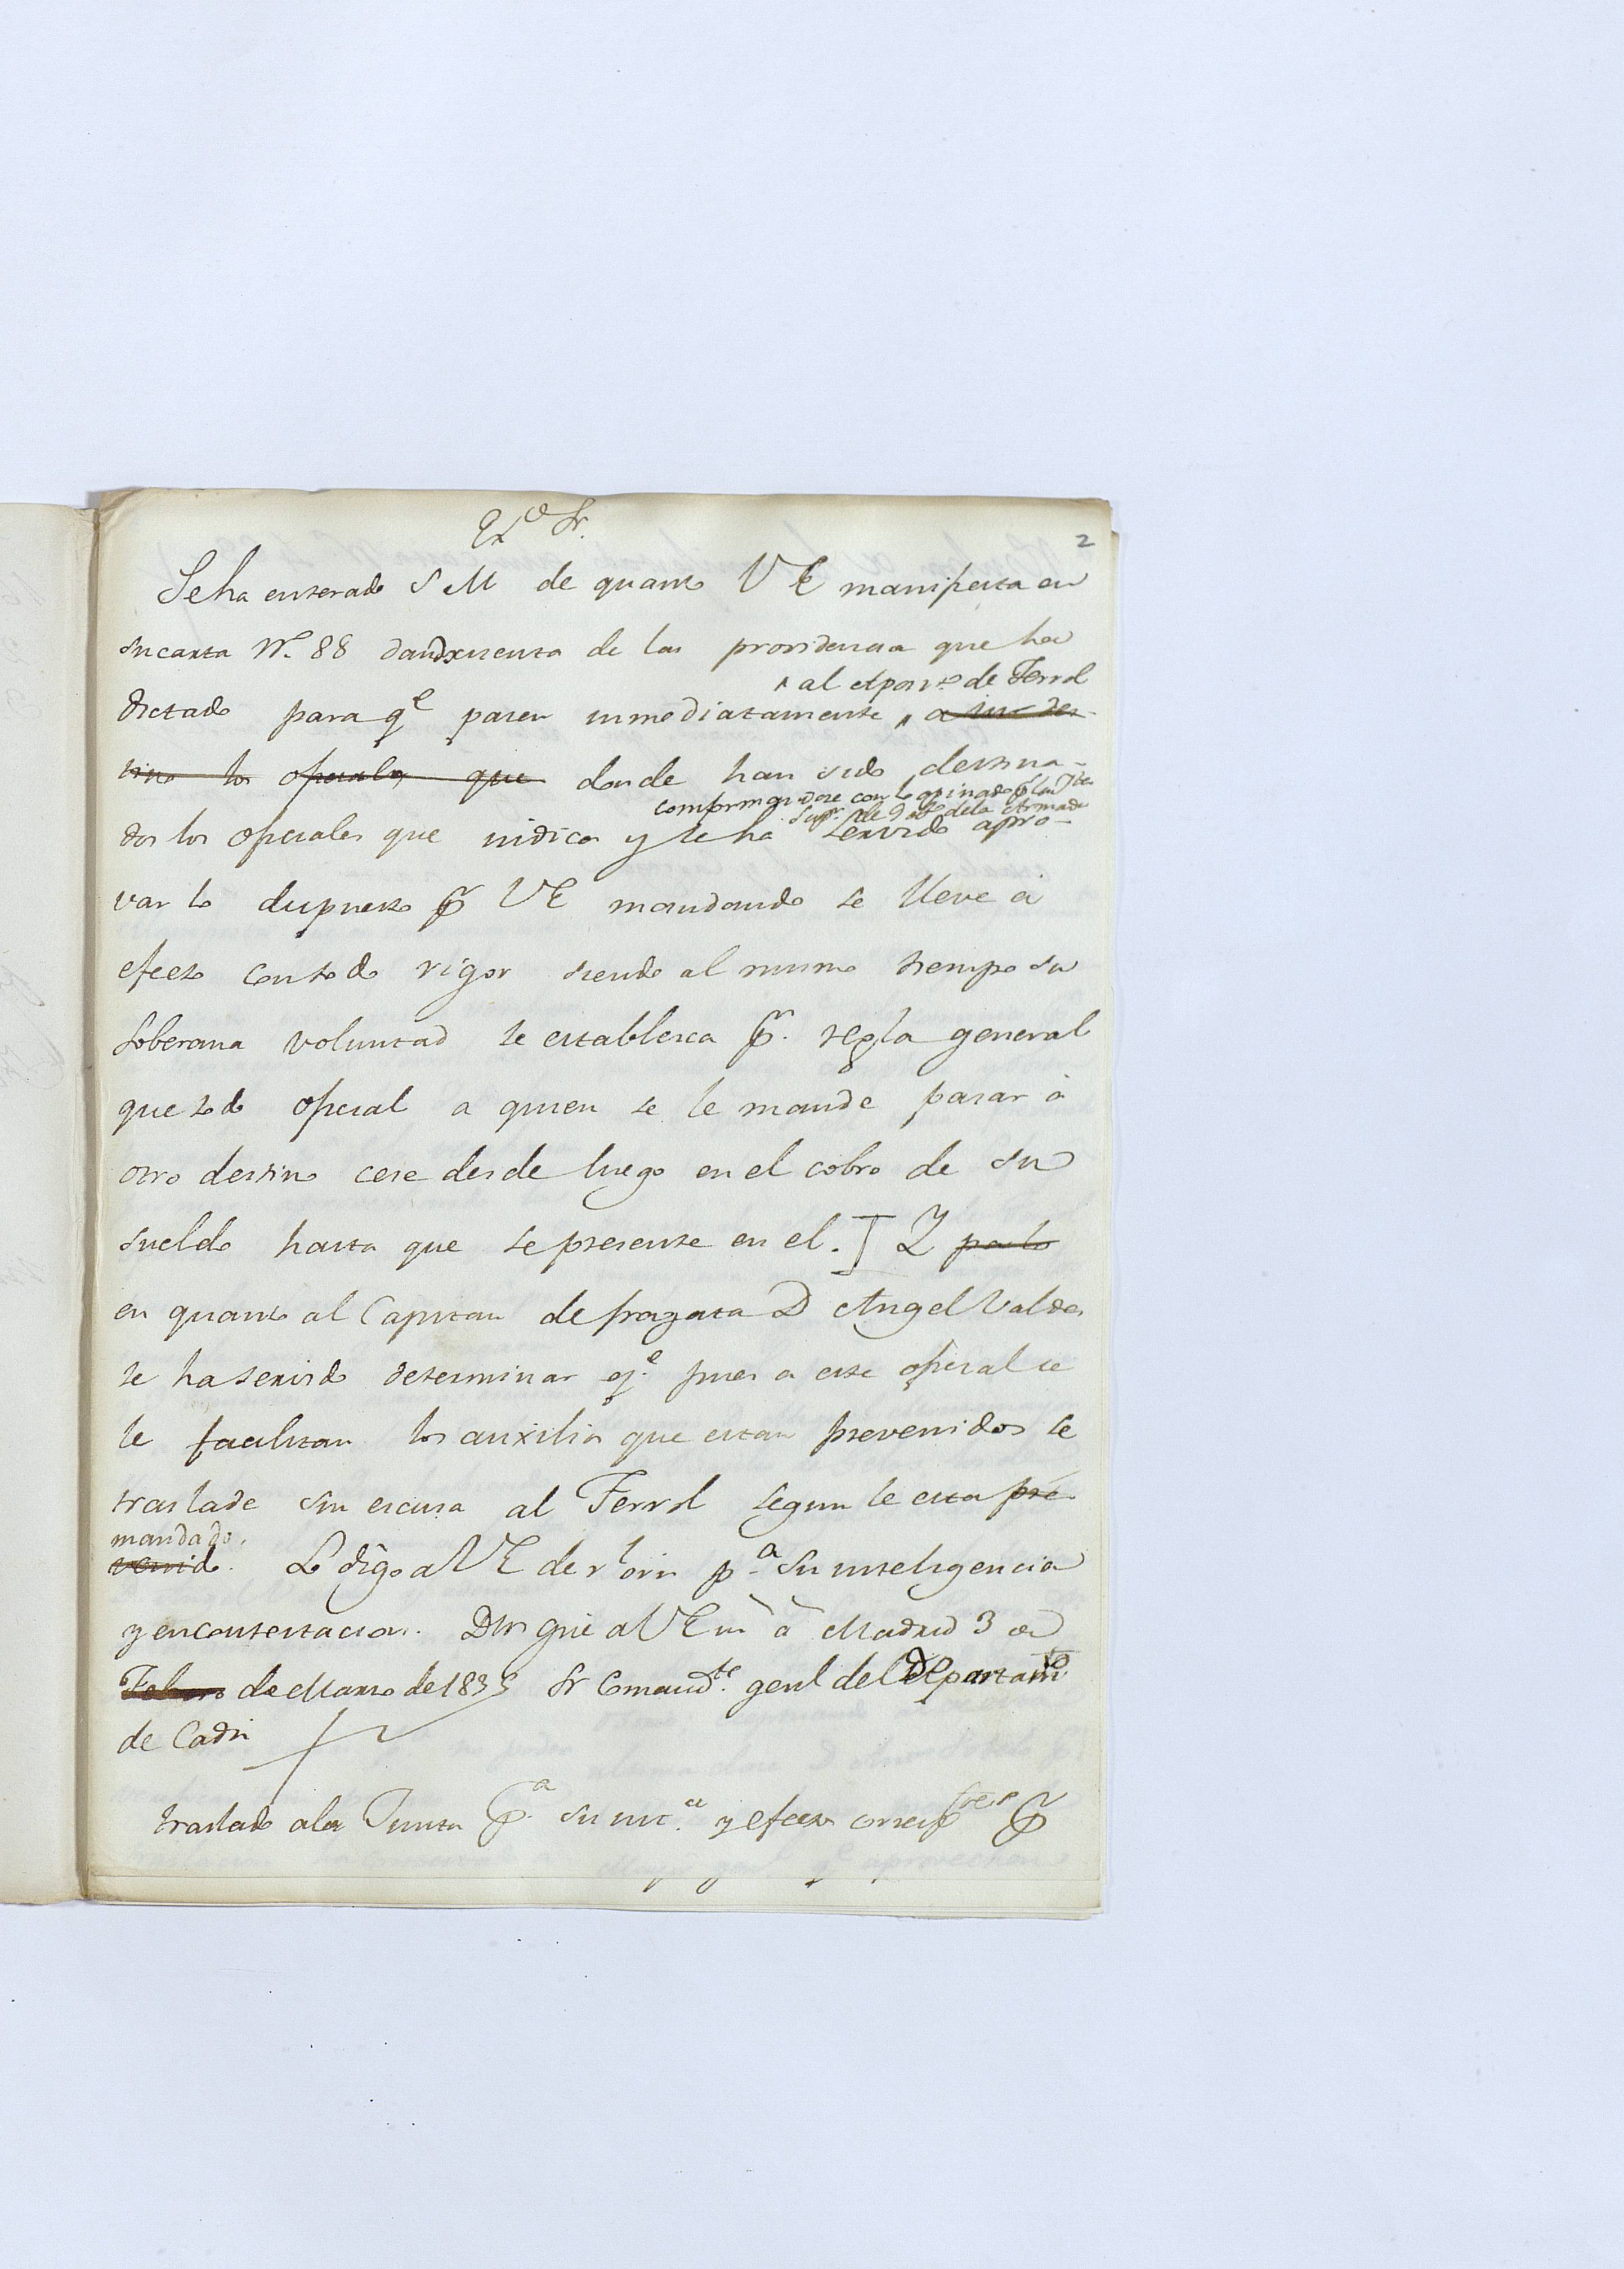 Ex.º Sr.
2
Se ha enterado S M de quanto V E manifiesta en
su carta Nº 88 dando cuenta de las providencias que ha
^ al dpar.to de Ferrol
dictado para q.e pasen inmediatamente ^ a su des-
tino los oficiales que donde han sido destina-
conformandose con lo opinado p.r la Jta
Sup.r de Gob.no de la Armada
dos los oficiales que indica y se ha servido apro-
var lo dispuesto p.r V E mandando se lleve á
efecto con todo rigor siendo al mismo tiempo su
soberana voluntad se establesca p.r regla general
que todo oficial a quien se le mande pasar á
otro destino cese desde luego en el cobro de su
sueldo hasta que se presente en el. ] Y po lo
en quanto al Capitan de fragata D Angel Valdes
se ha servido determinar q.e pues a este oficial se
le facilitan los auxilios que estan prevenidos se
traslade sin escusa al Ferrol segun le esta pre
mandado.
venido. Lo digo a V E de r.l orn p.a su inteligencia
y en contestacion. Dios gue a V E m.s a.s Madrid 3 de
Febrero de Marzo de 1835 Sr Comand.te genl del Departam.to
de Cadiz
traslado a la Junta p.a su int.a y efectos corresp.tes p.r